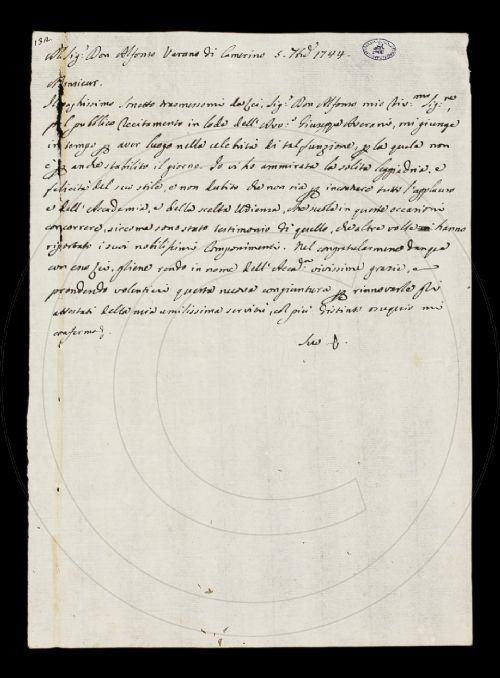 132.
Al Sig.r Don Alfonso Varano di Camerino 5. 7bre 1744.
Monsieur.
Il vaghissimo Sonetto trasmessomi da Lei, Sig.r Don Alfonso mio Riv.mo Sig.re,
pel pubblico Recitamento in lode dell' Avv.o Giuseppe Averani, mi giunge
in tempo p aver luogo nella celebrità di tal funzione, p la quale non
è p anche stabilito il giorno. Io vi ho ammirata la solita leggiadria, e
felicità del suo stile, e non dubito che non sia p incontrare tutto l'applauso
e dell' Accademia, e della scelta Udienza, che suole in queste occasioni
concorrere, siccome sono stato testimonio di quello, che altre volte hanno
riportato i suoi nobilissimi Componimenti. Nel congratularmene dunque
con esso Lei, gliene rendo in nome dell' Accad.a vivissime grazie, e
prendendo volentieri questa nuova congiuntura p rinnovarle gli
attestati della mia umilissima servitù, col più distinto ossequio mi
confermo